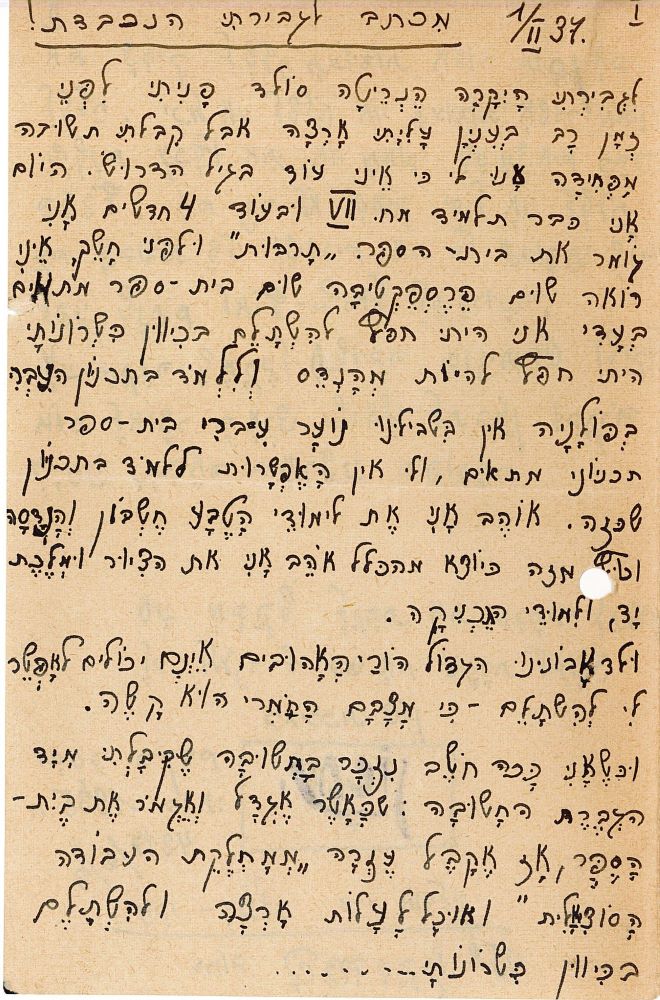 I
1/II 37.
מכתב לגבירתי הנכבדת!
לִגְבִירְתִי הַיְקָרָה הֶנְרִיטָה סוֹלד פָּנִיתִי לִפְנֵי
זְמָן רָב בְּעִנְיַן עָלִיָתִי אָרְצָה אבל קִבלתי תשוּבה
מַפְחִידָה עָנוּ לי כי אֵינִי עוֹד בגיל הדרוּש. היוֹם
אָנִי כבר תלמיד מח. VII וּבעוֹד 4 חדשים אָנִי
גומר את בית-הספר. „תָרבּוּת" וּלפני חָשֵׁךְ אֵינִי
רוֹאה שוּם פֶּרֶסְפֶּקְטִיבָה שוּם בית-ספר מתאים
בַּעֲדִי אני היתי חפץ להִשְׁתָּלֵם בכיווּן כִּשְׁרוֹנוֹתָי
היתי חפץ להיוֹת מְהַנְדֵס וְלִלְמד בתכנוֹן הָעִבְרִי
בְּפּוֹלָנְיָה אין בִּשבילנוּ נוֹעָר עִיבְרִי בית-ספר
תכנוֹני מתאים, ולי אין הָאֶפְשָׁרוּת ללמוֹד בתכנוֹן
שכזה. אוֹהב אָנִי אֶת לימוּדֵי הַטֶבַע חֶשְׁבּוֹן וְהַנְדָסָה
וחוּץ מזה כיוֹצא מהכלל אֹהֵב אָנִי את הציוּר וּמְלֶכֶת
יָד, ולִמוּדֵי הַטֶכְנִיקָה.
וּלדאבוֹנינוּ הגדוֹל הוֹרַי הָאָהוּבים אֵינָם יכוֹלים לאַפְשֵׁר
לִי לְהִשְׁתָלֵם - כִּי מָצָבָם הַחָמְרִי הוּא קָשֶׁה.
וּכשֶאָנִי כָּכה חֹשֵׁב נִזְכָּר בָּתְשׁוּבָה שֶקִיבָּלְתִי מִיַד
הַגְבֶרֶת החָשׁוּבה: שכָּאֲשֶׁר אֶגְדָל וְאֶגְמֹר אֶת בֵּית-
הַסֵפֶר, אָז אֶקַבֵּל עֶזְרָה „מִמַחְלֶקֶת העבוֹדה
הַסוֹצְאָלִית" ואוּכַל לָעָלוֹת אָרְצָה וּלהִשְׁתָלֵם
בכִּיווּן כִּשְׁרוֹנוֹתָי..........